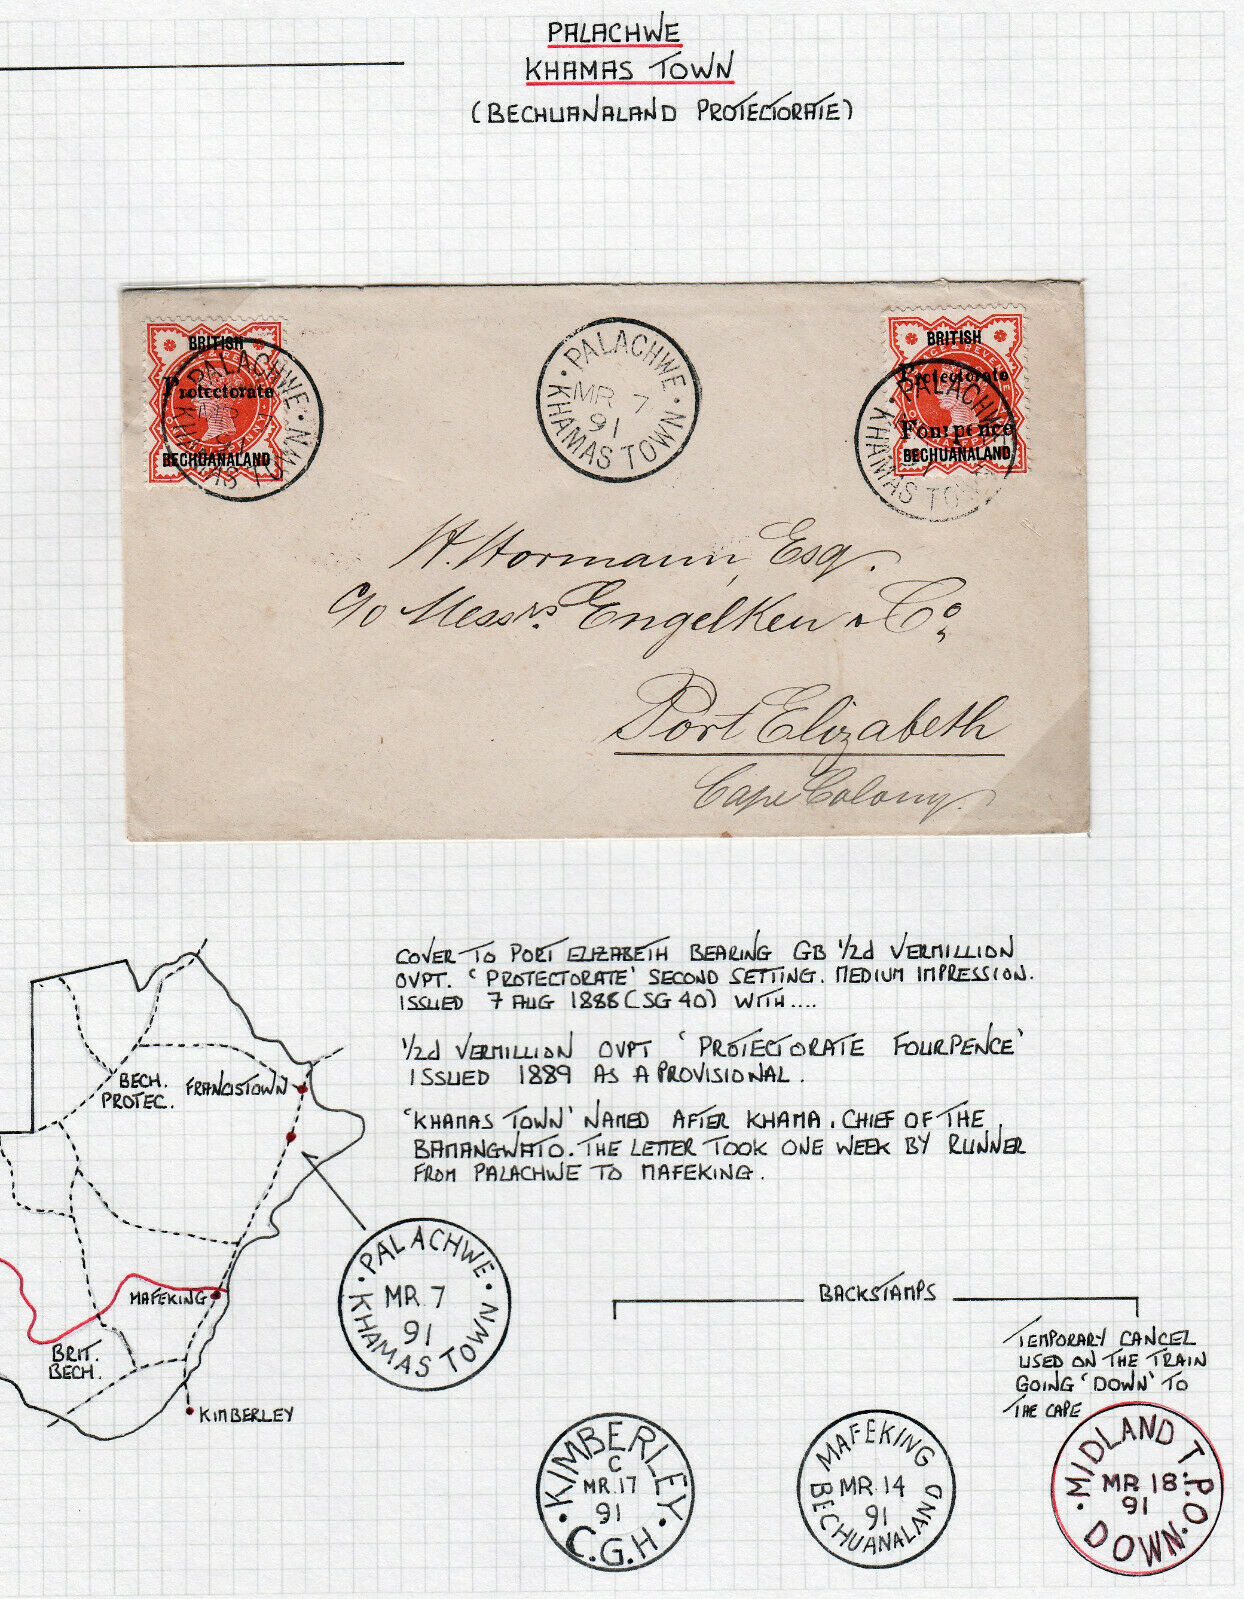 PALACHWE
KHAMAS TOWN
(BECHUANALAND PROTECTORATE)
BRITISH
Protectorate
BECHUANALAND
PALACHWE
KHAMAS TOWN
PALACHWE
MR 7
91
KHAMAS TOWN
BRITISH
Protectorate
Fourpence
BECHUANALAND
PALACHWE
KHAMAS TOWN
H. Hormann, Esq.
c/o Messrs. Engelken & Co,
Port Elizabeth
Cape Colony.
COVER TO PORT ELIZABETH BEARING GB 1/2d VERMILLION
OVPT. 'PROTECTORATE' SECOND SETTING. MEDIUM IMPRESSION.
ISSUED 7 AUG 1888 (SG 40) WITH....
1/2d VERMILLION OVPT 'PROTECTORATE FOURPENCE'
ISSUED 1889 AS A PROVISIONAL.
'KHAMAS TOWN' NAMED AFTER KHAMA. CHIEF OF THE
BAMANGWATO. THE LETTER TOOK ONE WEEK BY RUNNER
FROM PALACHWE TO MAFEKING.
BECH.
PROTEC.
FRANCISTOWN
MAFEKING
BRIT.
BECH.
KIMBERLEY
PALACHWE
MR 7
91
KHAMAS TOWN
BACKSTAMPS
TEMPORARY CANCEL
USED ON THE TRAIN
GOING 'DOWN' TO
THE CAPE
KIMBERLEY
C
MR.17
91
C.G.H
MAFEKING
MR.14
91
BECHUANALAND
MIDLAND T.P.O.
MR 18
91
DOWN